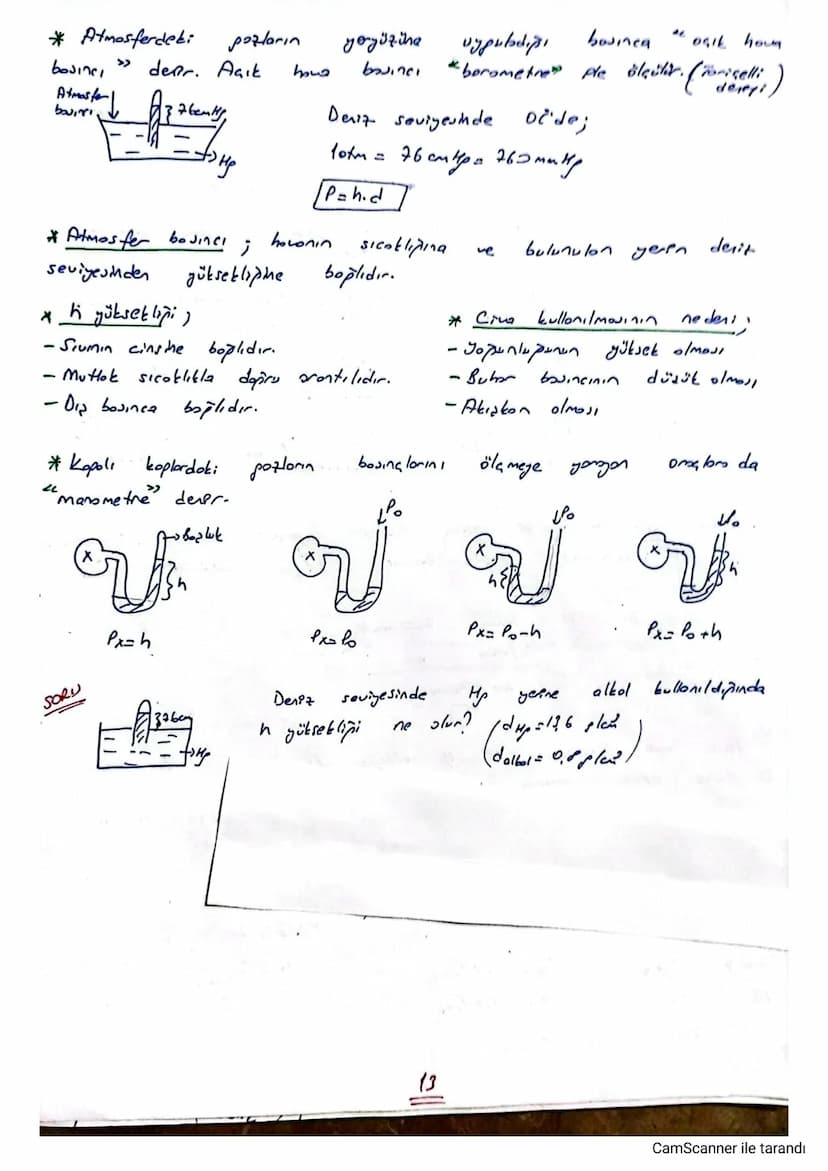 * Atmosferdeki gazların yeryüzüne uyguladığı basınca "açık hava
basıncı" denir. Açık hava basıncı "barometre" ile ölçülür. (Toriçelli
deneyi)
Atmosfer
basıncı
76cmHg
Hg
Deniz seviyesinde 0°C'de;
1atm = 76 cmHg = 760 mmHg
P = h.d
* Atmosfer basıncı; havanın sıcaklığına ve bulunulan yerin deniz
seviyesinden yüksekliğine bağlıdır.
* h yüksekliği;
- Sıvının cinsine bağlıdır.
- Mutlak sıcaklıkla doğru orantılıdır.
- Dış basınca bağlıdır.
* Civa kullanılmasının nedeni;
- Yoğunluğunun yüksek olması
- Buhar basıncının düşük olması
- Akışkan olması
* Kapalı kaplardaki gazların basınçlarını ölçmeye yarayan araçlara da
"manometre" denir.
X
Boşluk
h
Px = h
X
Po
Px = Po
X
Po
h
Px = Po - h
X
Po
h
Px = Po + h
SORU
76cm
Hg
Deniz seviyesinde Hg yerine alkol kullanıldığında
h yüksekliği ne olur? (dHg = 13,6 g/cm³
dalkol = 0,8 g/cm³)
13
CamScanner ile tarandı